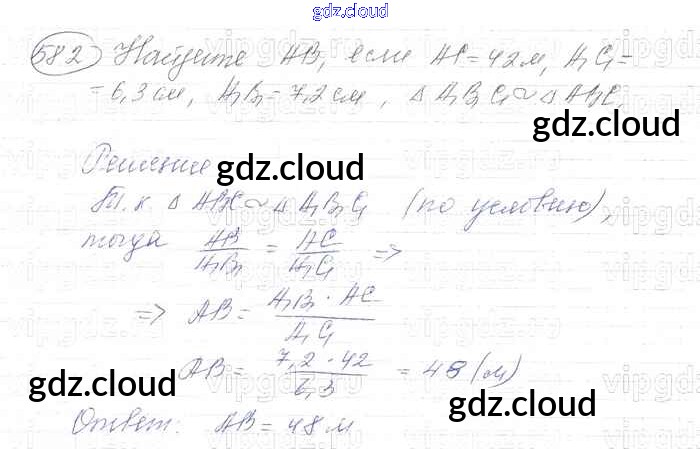 gdz.cloud
582 Найдите AB, если AC = 42 м, A₁C₁ =
= 6,3 см, A₁B₁ = 7,2 см, Δ A₁B₁C₁ ~ Δ ABC.
Решение
gdz.cloud
gdz.cloud
Т.к. Δ ABC ~ Δ A₁B₁C₁ (по условию),
тогда AB/A₁B₁ = AC/A₁C₁ =>
=> AB = A₁B₁ · AC / A₁C₁
AB = 7,2 · 42 / 6,3 = 48 (м)
gdz.cloud
gdz.cloud
Ответ: AB = 48 м